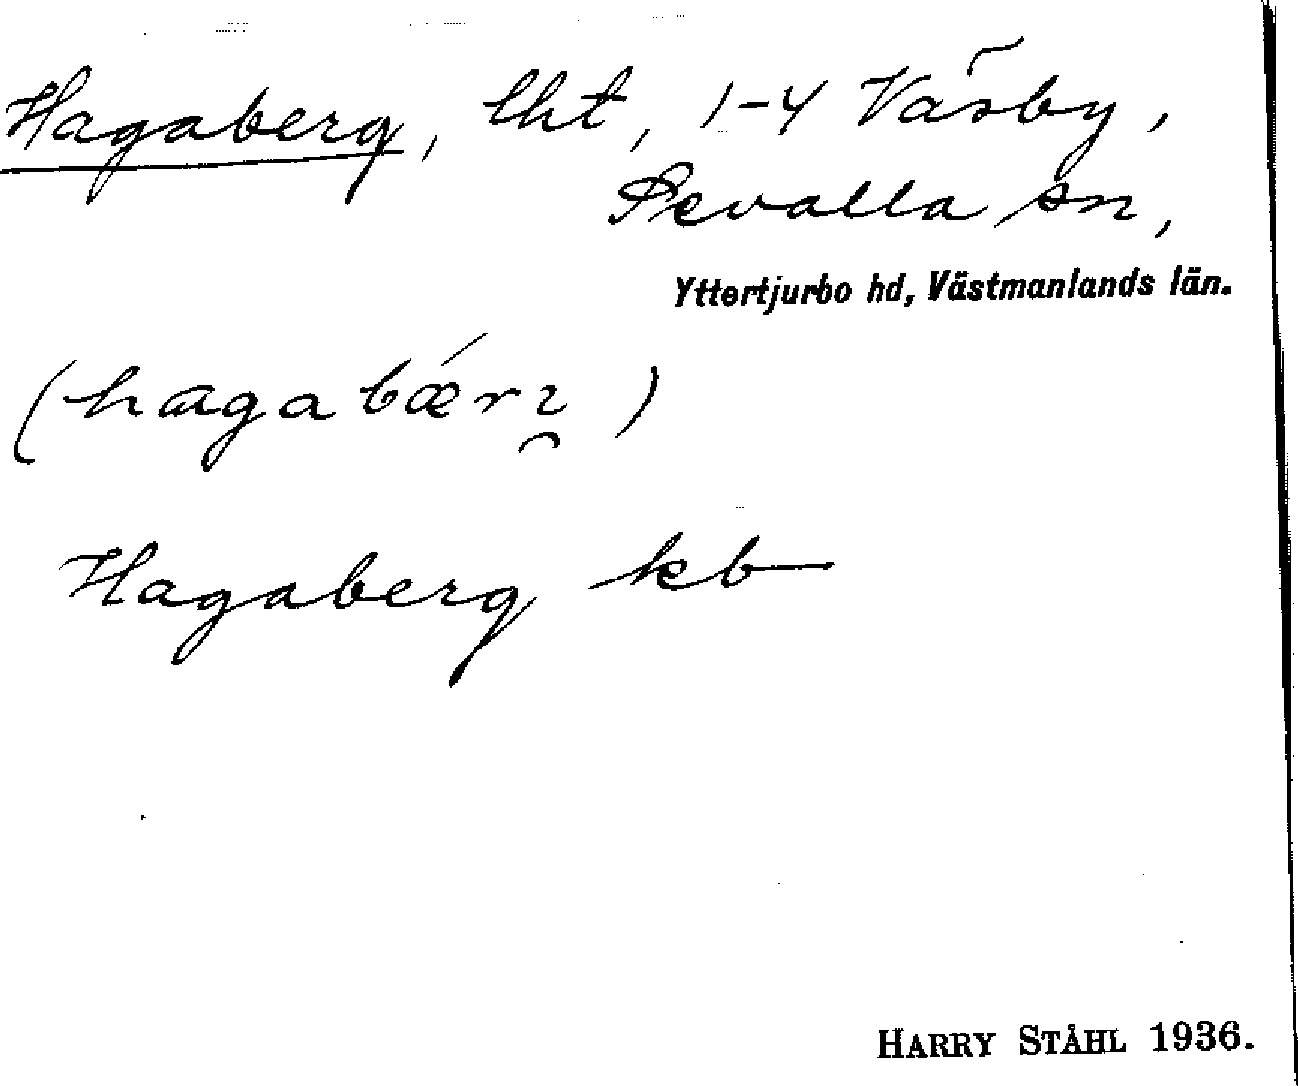 Hagaberg, lht, 1-4 Väsby,
Revalla sn,
Yttertjurbo hd, Västmanlands län.
(hagabǽrɿ̯)
Hagaberg kb
HARRY STÅHL 1936.